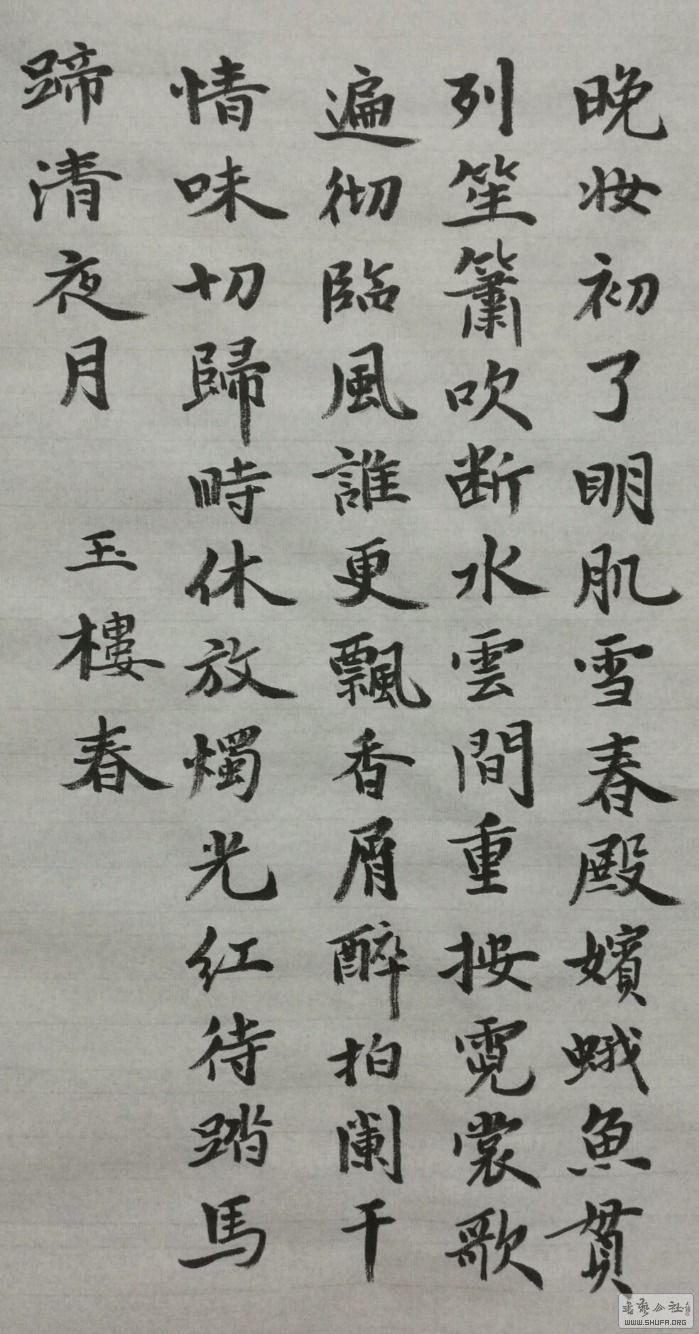 晚妆初了明肌雪春殿嬪蛾魚貫
列笙簫吹断水雲間重按霓裳歌
遍彻臨風誰更飄香屑醉拍闌干
情味切歸時休放燭光红待踏馬
蹄清夜月 玉樓春
书艺公社
WWW.SHUFA.ORG